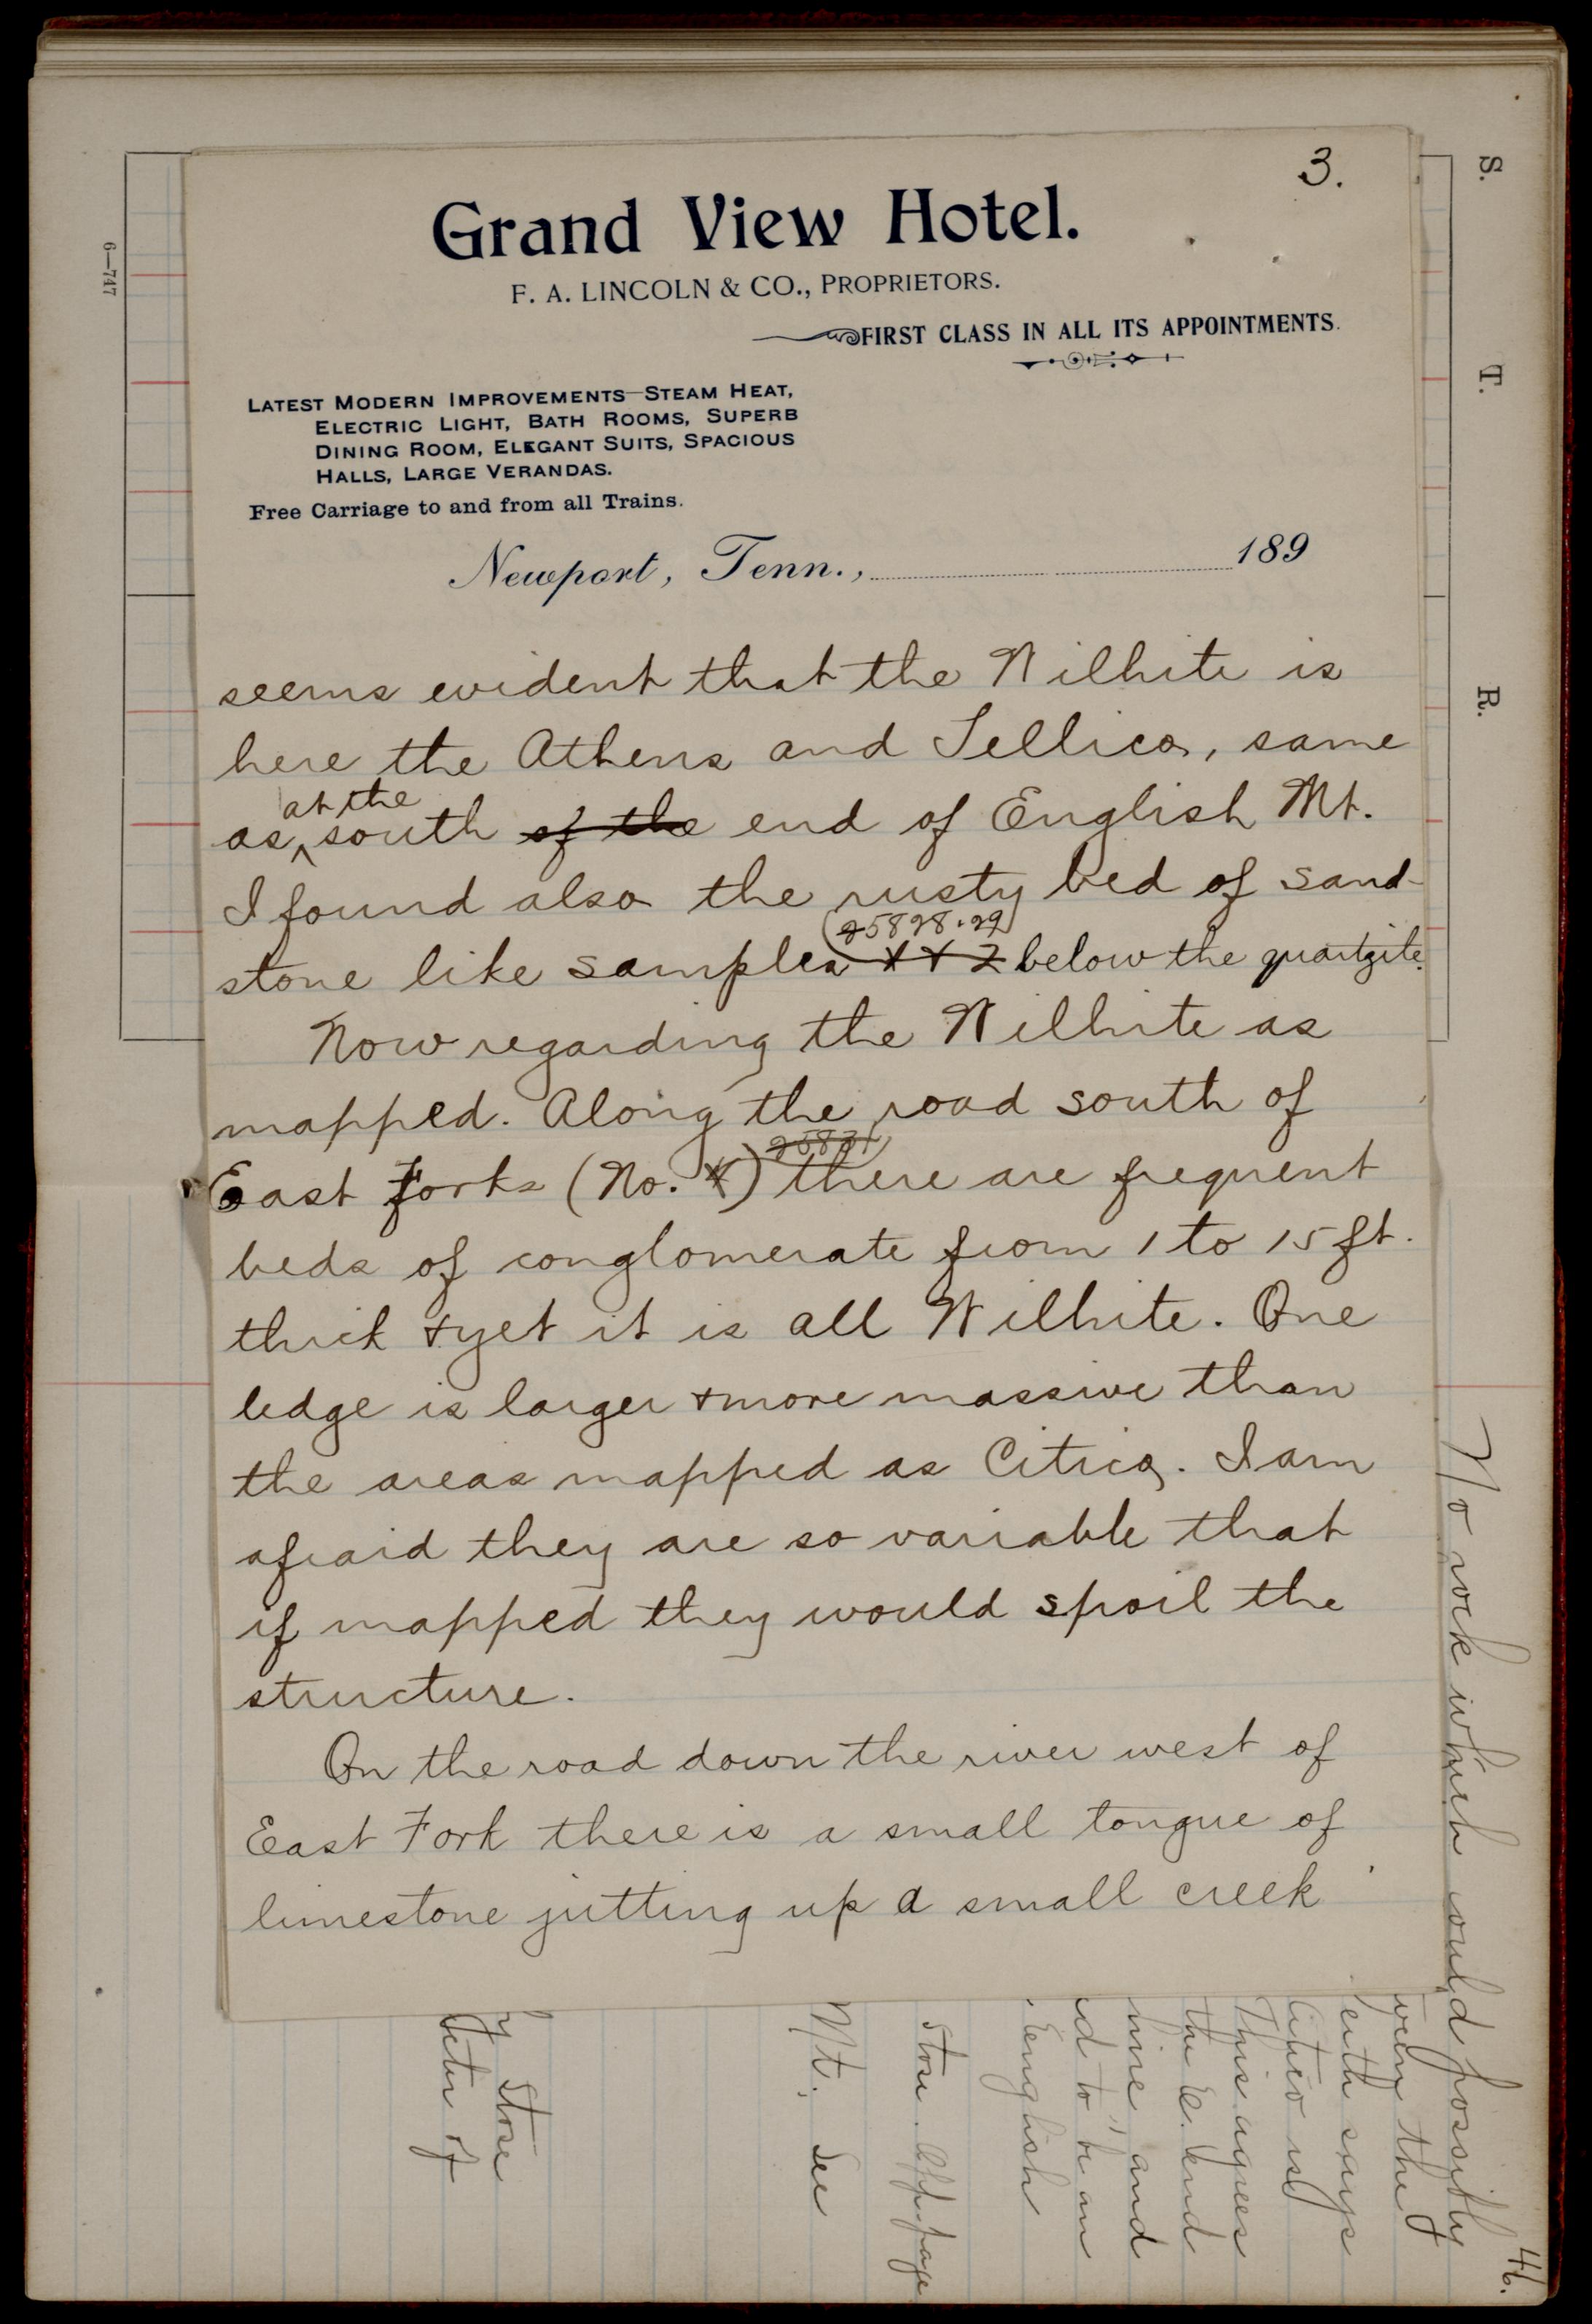 3.
Grand View Hotel.
F. A. LINCOLN & CO., PROPRIETORS.
FIRST CLASS IN ALL ITS APPOINTMENTS.
LATEST MODERN IMPROVEMENTS—STEAM HEAT,
ELECTRIC LIGHT, BATH ROOMS, SUPERB
DINING ROOM, ELEGANT SUITS, SPACIOUS
HALLS, LARGE VERANDAS.
Free Carriage to and from all Trains.
Newport, Tenn., 189
seems evident that the Wilhite is
here the Athens and Tellico, same
at the
as ^ south of the end of English Mt.
I found also the rusty bed of sand-
(25828.29)
stone like samples below the quartzite.
Now regarding the Wilhite as
mapped. Along the road south of
25831
East Forks (No. ) there are frequent
beds of conglomerate from 1 to 15 ft.
thick & yet it is all Wilhite. One
ledge is larger & more massive than
the areas mapped as Citico. I am
afraid they are so variable that
if mapped they would spoil the
structure.
On the road down the river west of
East Fork there is a small tongue of
limestone jutting up a small creek
6—747
S. T. R.
46.
No rock which could possibly
the
says
Citico is
This agrees
the E. end
and
to be an
English
Stose. page
Mt. See
Stose
of